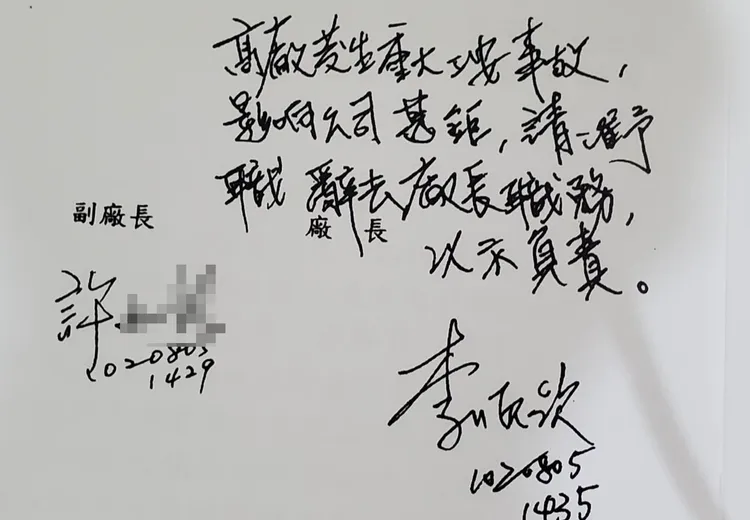 高廠發生重大工安事故，
影響公司甚鉅，請准予
職辭去廠長職務，
以示負責。
副廠長
廠長
許
1020805
1429
李順欽
1020805
1435